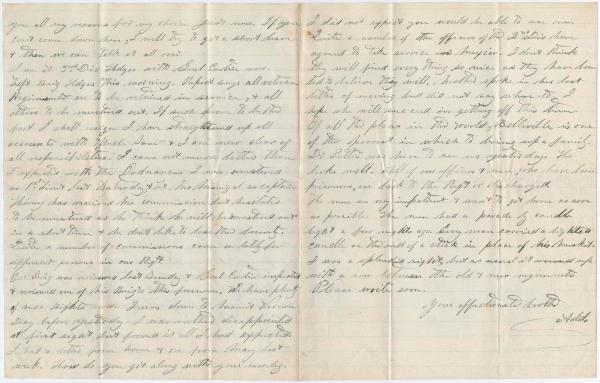 you all my reasons for my choice just now. If you
can't come down here, I will try to get a short leave
& then we can talk it all over.
I am at 3rd Div Hdqrs with Genl Curtin now.
Left Brig Hdqrs this morning. Report says all veteran
Regiments are to be retained in service, & all
others to be mustered out. If such proves to be the
fact I shall resign. I have straightened up all
accounts with Uncle Sam & I am now clear of
all responsibilities. I came out much better than
I expected with the Ordnance. I was mustered
as 1st Lieut last Saturday & Lt. as captain
has received his commission but hesitates
to be mustered as he thinks he will be mustered out
in a short time & he don't like to lose the bounty.
Quite a number of commissions came on lately for
different persons in our Regt.
Our Brig was reviewed last Sunday & Genl Curtin inspected
& reviewed one of his Brigs this forenoon. We have plenty
of nice sights now. I was down to Mount Vernon
Day before yesterday. I was rather disappointed
at first sight but found it all I had expected.
I had a letter from home & one from Mary last
week. How do you get along with your new leg.
I did not expect you would be able to use one
Quite a number of the officers of the 2nd Div have
agreed to take service in Mexico. I don't think
they will find everything so nice as they have been
led to believe they will. spoke in her last
letter of moving but did not say where to. I
hope she will succeed in getting off this time
Of all the places in the world, Belleville is one
of the poorest in which to bring up a family.
Dr was here to see us yesterday. He
looks well. All of our officers & men, who have been
prisoners, are back to the Regt or discharged.
The men are very impatient & want to get home as soon
as possible. The men had a parade by candle
light a few nights ago. Every man carried a lighted
candle on the end of a stick in place of his musket.
It was a splendid sight, but as usual it wound up
with a row between the old & new regiments
Please write soon.
Your affectionate brother
Add